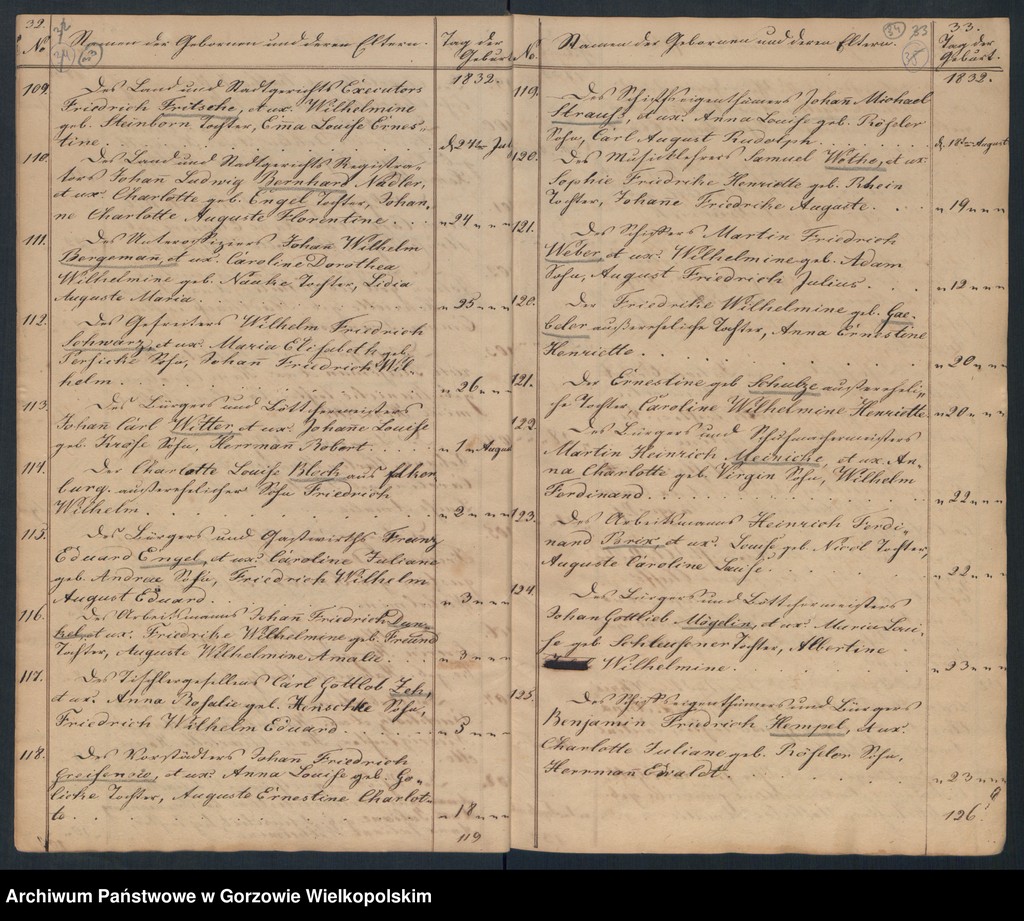 32.
No
Namen der Gebornen und deren Eltern.
Tag der
Geburt
1832.
109.
Des Land und Stadtgerichts Executors
Friedrich Fritsche, et ux. Wilhelmine
geb. Steinborn Tochter, Em̄a Louise Ernes-
tine.
d. 24ten Jul
110.
Des Land und Stadtgerichts Registra-
tors Johan̄ Ludwig Bernhard Nadler,
et ux. Charlotte geb. Engel Tochter, Johan̄-
ne Charlotte Auguste Florentine.
" 24 " "
111.
Des Unteroffiziers Johan̄ Wilhelm
Bergeman̄, et ux. Caroline Dorothea
Wilhelmine geb. Tochter, Lidia
Auguste Maria.
" 25 " "
112.
Des Gefreiters Wilhelm Friedrich
Schwarz, et ux. Maria Elisabeth geb.
Persicke Sohn, Johan̄ Friedrich Wil-
helm.
" 26 " "
113.
Des Bürgers und Böttchermeisters
Johan̄ Carl Wetter, et ux. Johan̄e Louise
geb. Krose Sohn, Herrman̄ Robert.
" 1 " August
114.
Der Charlotte Louise Bleck aus
burg. außerehelicher Sohn Friedrich
Wilhelm.
" 2 " " "
115.
Des Bürgers und Gastwirths Franz
Eduard Engel, et ux. Caroline Juliane
geb. Andreae Sohn, Friedrich Wilhelm
August Eduard.
" 3 " " "
116.
Des Arbeitsmanns Johan̄ Friedrich Dun-
kel, et ux. Friedrike Wilhelmine geb. Freund
Tochter, Auguste Wilhelmine Amalie.
" 3 " " "
117.
Des Tischlergesellens Carl Gottlob Zeh,
et ux. Anna Rosalie geb. Henschke Sohn,
Friedrich Wilhelm Eduard.
" 5 " "
118.
Des Vorstädters Johan̄ Friedrich
Greifensee, et ux. Anna Louise geb. Go-
licke Tochter, Auguste Ernestine Charlot-
te.
" 18 " "
119
33.
No.
Namen der Gebornen und deren Eltern.
Tag der
Geburt.
1832.
119.
Des Schiffseigenthümers Johan̄ Michael
Strauß, et ux. Anna Louise geb. Röseler
Sohn, Carl August Rudolph.
d. 18ten August
120.
Des Musiklehrers Samuel Wothe, et ux.
Sophie Friedrike Henriette geb. Rhein
Tochter, Johan̄e Friedrike Auguste.
" 19 " " "
121.
Des Schiffers Martin Friedrich
Weber, et ux. Wilhelmine geb. Adam
Sohn, August Friedrich Julius.
" 12 " " "
120.
Der Friedrike Wilhelmine geb. Gae-
beler außereheliche Tochter, Anna Ernestine
Henriette.
" 20 " " "
121.
Der Ernestine geb. Schulze außereheli-
che Tochter, Caroline Wilhelmine Henriette
" 20 " " "
122.
Des Bürgers und Schuhmachermeisters
Martin Heinrich Meinicke, et ux. An-
na Charlotte geb. Virgin Sohn, Wilhelm
Ferdinand.
" 22 " " "
123.
Des Arbeitsmanns Heinrich Ferdi-
nand Brix, et ux. Louise geb. Nicol Tochter,
Auguste Caroline Louise.
" 22 " " "
124.
Des Bürgers und Böttchermeisters
Johan Gottlieb Mögelin, et ux. Maria Loui-
se geb. Schleusener Tochter, Albertine
Wilhelmine.
" 23 " " "
125.
Des Schiffseigenthümers und Bürgers
Benjamin Friedrich Hempel, et ux.
Charlotte Juliane geb. Röseler Sohn,
Herrman̄ Ewaldt.
" 23 " " "
126.
Archiwum Państwowe w Gorzowie Wielkopolskim